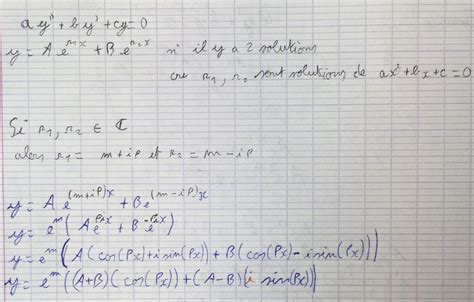 a y" + b y' + cy = 0
y = A e^{r₁x} + B e^{r₂x} s'il y a 2 solutions
où r₁, r₂ sont solutions de ax² + bx + c = 0
Si r₁, r₂ ∈ ℂ
alors r₁ = m + ip et r₂ = m - ip
y = A e^{(m+ip)x} + B e^{(m-ip)x}
y = e^m (A e^{pix} + B e^{-pix})
y = e^m (A(cos(px) + i sin(px)) + B(cos(px) - i sin(px)))
y = e^m ((A+B)(cos(px)) + (A-B)(i sin(px)))